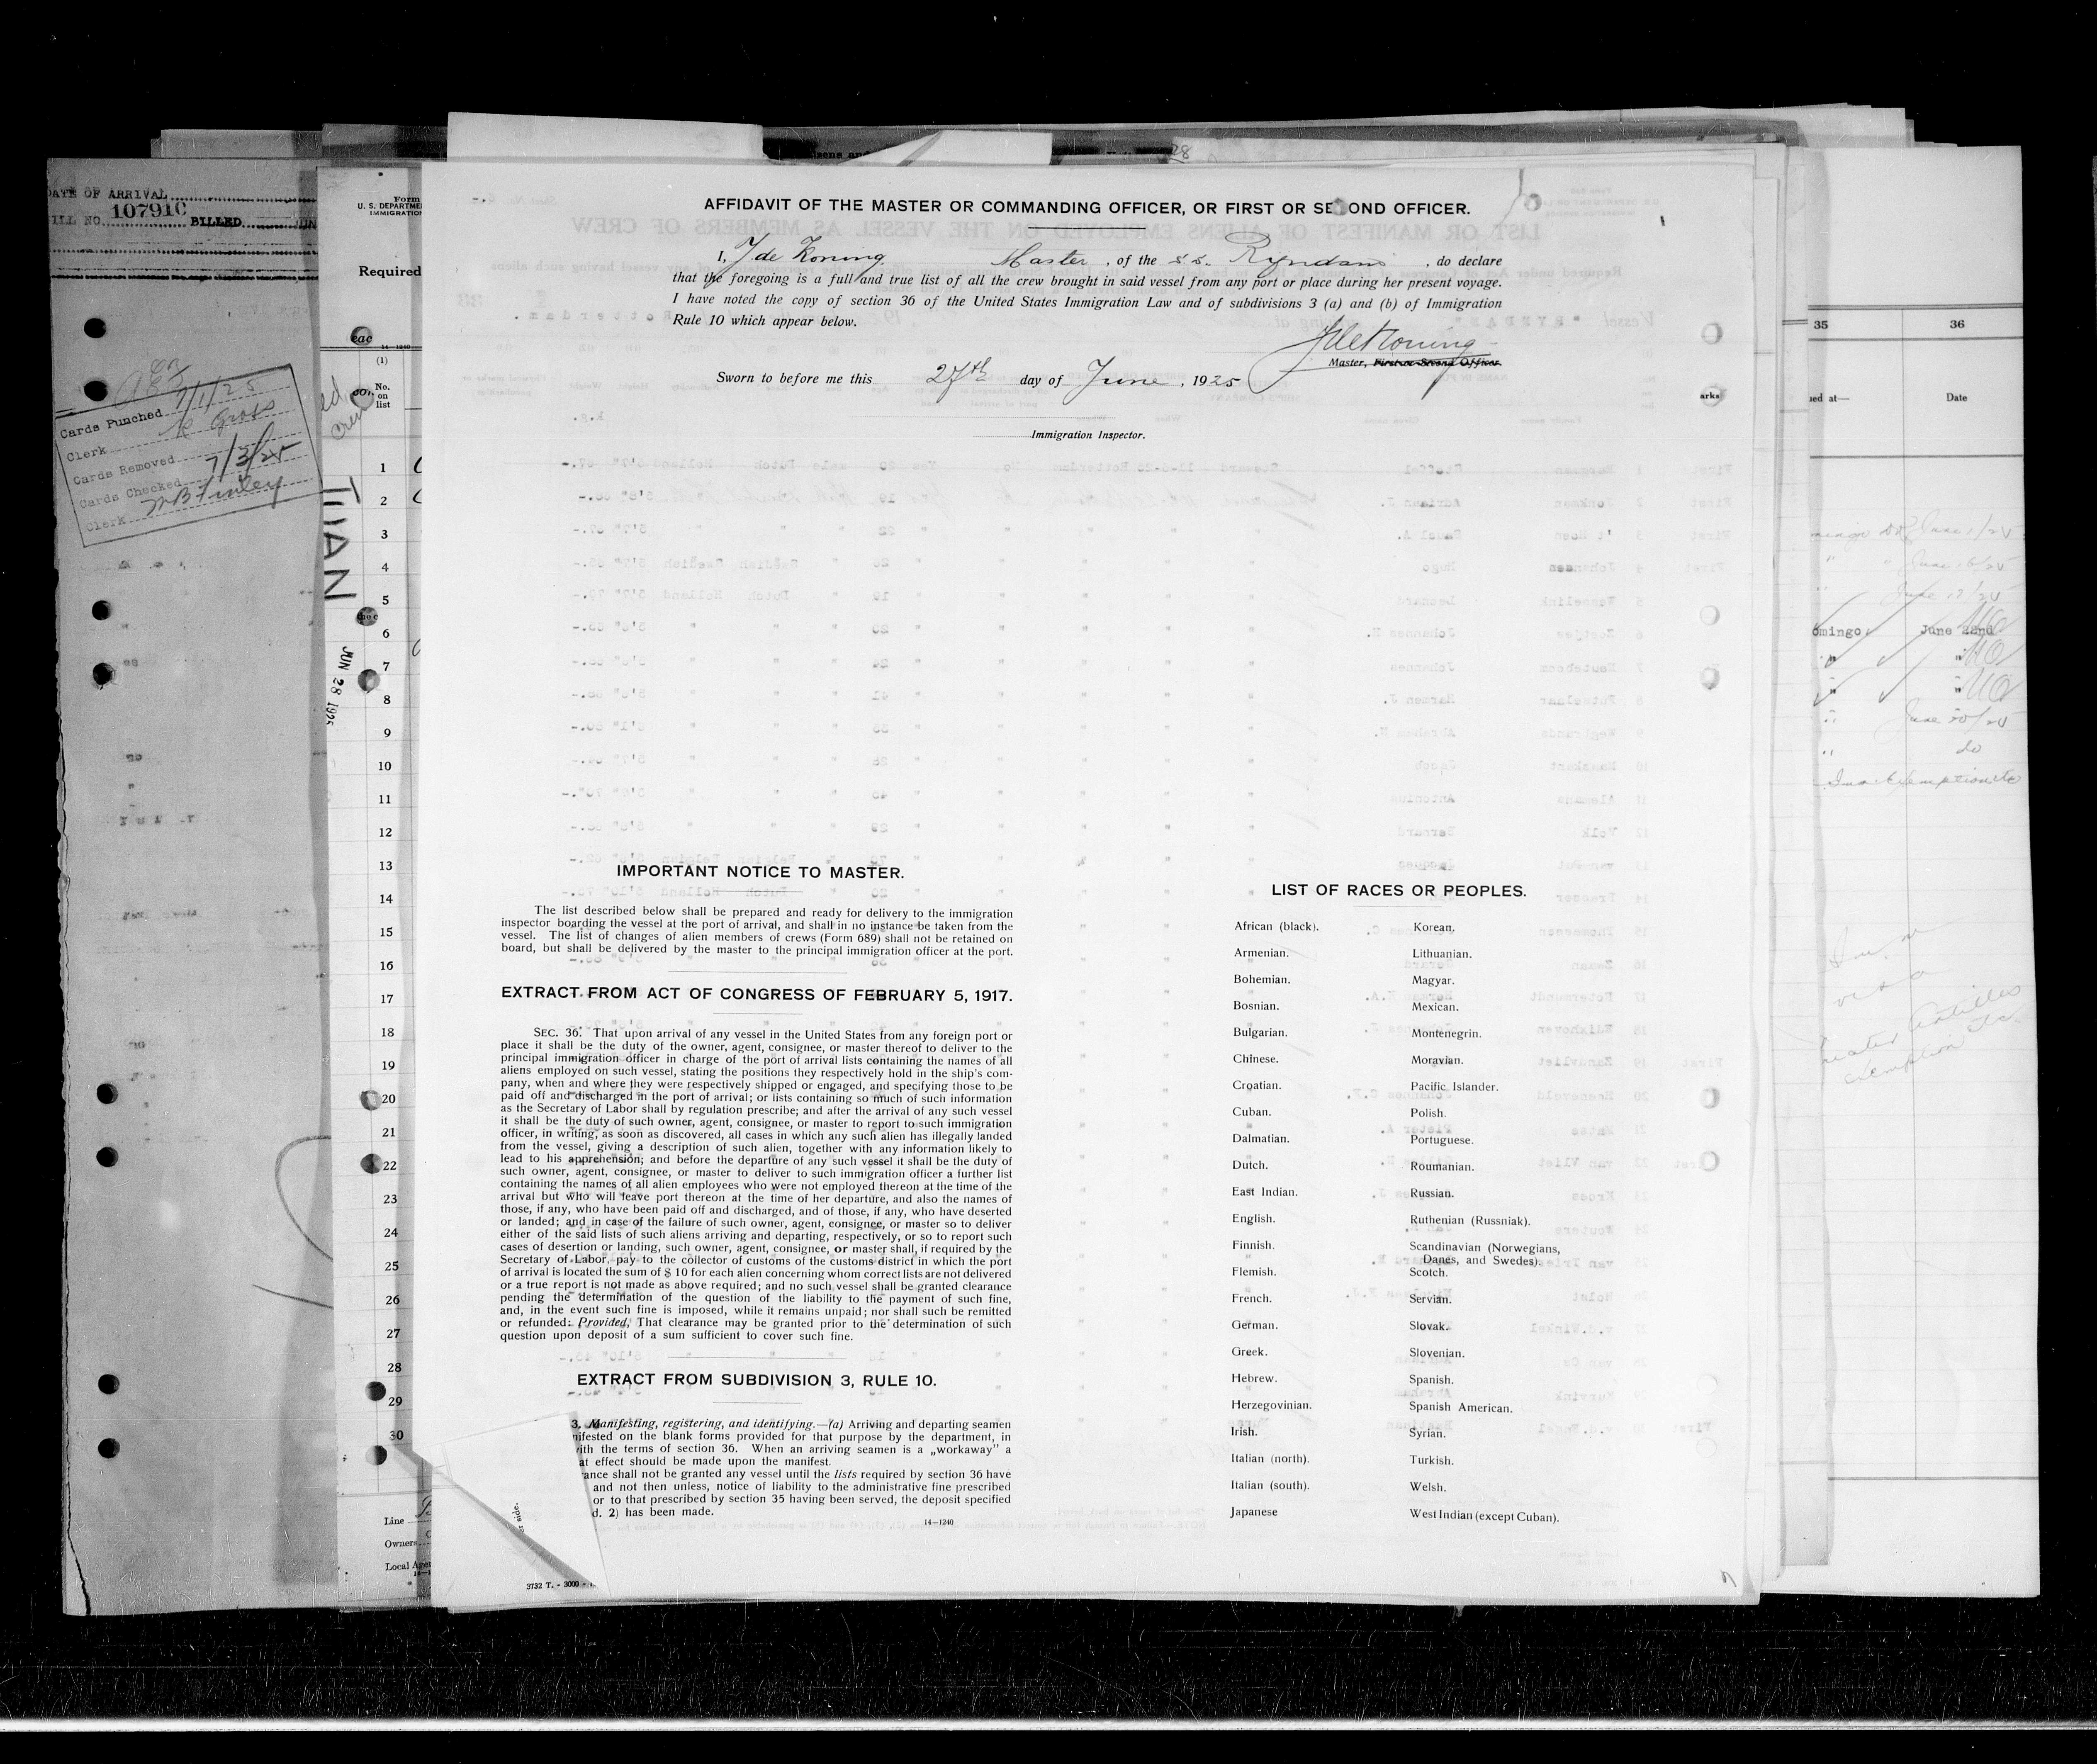 DATE OF ARRIVAL
BILL NO. 107910 BILLED JUN
Cards Punched 7/1/25
Clerk K Gross
Cards Removed
Cards Checked 7/3/25
Clerk M B Finley
Form
U. S. DEPARTME
IMMIGRATION
Required
eac
14—1240
(1)
No.
on
list
JUN 28 1925
1
2
3
4
5
6
7
8
9
10
11
12
13
14
15
16
17
18
19
20
21
22
23
24
25
26
27
28
29
30
Line
Owners
Local Age
AFFIDAVIT OF THE MASTER OR COMMANDING OFFICER, OR FIRST OR SECOND OFFICER.
I, J de Koning Master, of the s.s. Ryndam, do declare
that the foregoing is a full and true list of all the crew brought in said vessel from any port or place during her present voyage.
I have noted the copy of section 36 of the United States Immigration Law and of subdivisions 3 (a) and (b) of Immigration
Rule 10 which appear below.
J de Koning
Master, First or Second Officer.
Sworn to before me this 27th day of June, 1925
Immigration Inspector.
IMPORTANT NOTICE TO MASTER.
The list described below shall be prepared and ready for delivery to the immigration
inspector boarding the vessel at the port of arrival, and shall in no instance be taken from the
vessel. The list of changes of alien members of crews (Form 689) shall not be retained on
board, but shall be delivered by the master to the principal immigration officer at the port.
EXTRACT FROM ACT OF CONGRESS OF FEBRUARY 5, 1917.
SEC. 36. That upon arrival of any vessel in the United States from any foreign port or
place it shall be the duty of the owner, agent, consignee, or master thereof to deliver to the
principal immigration officer in charge of the port of arrival lists containing the names of all
aliens employed on such vessel, stating the positions they respectively hold in the ship's com-
pany, when and where they were respectively shipped or engaged, and specifying those to be
paid off and discharged in the port of arrival; or lists containing so much of such information
as the Secretary of Labor shall by regulation prescribe; and after the arrival of any such vessel
it shall be the duty of such owner, agent, consignee, or master to report to such immigration
officer, in writing, as soon as discovered, all cases in which any such alien has illegally landed
from the vessel, giving a description of such alien, together with any information likely to
lead to his apprehension; and before the departure of any such vessel it shall be the duty of
such owner, agent, consignee, or master to deliver to such immigration officer a further list
containing the names of all alien employees who were not employed thereon at the time of the
arrival but who will leave port thereon at the time of her departure, and also the names of
those, if any, who have been paid off and discharged, and of those, if any, who have deserted
or landed; and in case of the failure of such owner, agent, consignee, or master so to deliver
either of the said lists of such aliens arriving and departing, respectively, or so to report such
cases of desertion or landing, such owner, agent, consignee, or master shall, if required by the
Secretary of Labor, pay to the collector of customs of the customs district in which the port
of arrival is located the sum of $ 10 for each alien concerning whom correct lists are not delivered
or a true report is not made as above required; and no such vessel shall be granted clearance
pending the determination of the question of the liability to the payment of such fine,
and, in the event such fine is imposed, while it remains unpaid; nor shall such be remitted
or refunded: Provided, That clearance may be granted prior to the determination of such
question upon deposit of a sum sufficient to cover such fine.
EXTRACT FROM SUBDIVISION 3, RULE 10.
3. Manifesting, registering, and identifying.—(a) Arriving and departing seamen
nifested on the blank forms provided for that purpose by the department, in
ith the terms of section 36. When an arriving seamen is a „workaway” a
at effect should be made upon the manifest.
ance shall not be granted any vessel until the lists required by section 36 have
and not then unless, notice of liability to the administrative fine prescribed
or to that prescribed by section 35 having been served, the deposit specified
d. 2) has been made.
14—1240
3732 T. - 3000 -
LIST OF RACES OR PEOPLES.
African (black). Korean.
Armenian. Lithuanian.
Bohemian. Magyar.
Bosnian. Mexican.
Bulgarian. Montenegrin.
Chinese. Moravian.
Croatian. Pacific Islander.
Cuban. Polish.
Dalmatian. Portuguese.
Dutch. Roumanian.
East Indian. Russian.
English. Ruthenian (Russniak).
Finnish. Scandinavian (Norwegians,
Danes, and Swedes).
Flemish. Scotch.
French. Servian.
German. Slovak.
Greek. Slovenian.
Hebrew. Spanish.
Herzegovinian. Spanish American.
Irish. Syrian.
Italian (north). Turkish.
Italian (south). Welsh.
Japanese West Indian (except Cuban).
35 36
ued at— Date
arks
June 1/25
June 16/25
June 17/25
omingo June 22nd
" "
" "
June 20/25
do